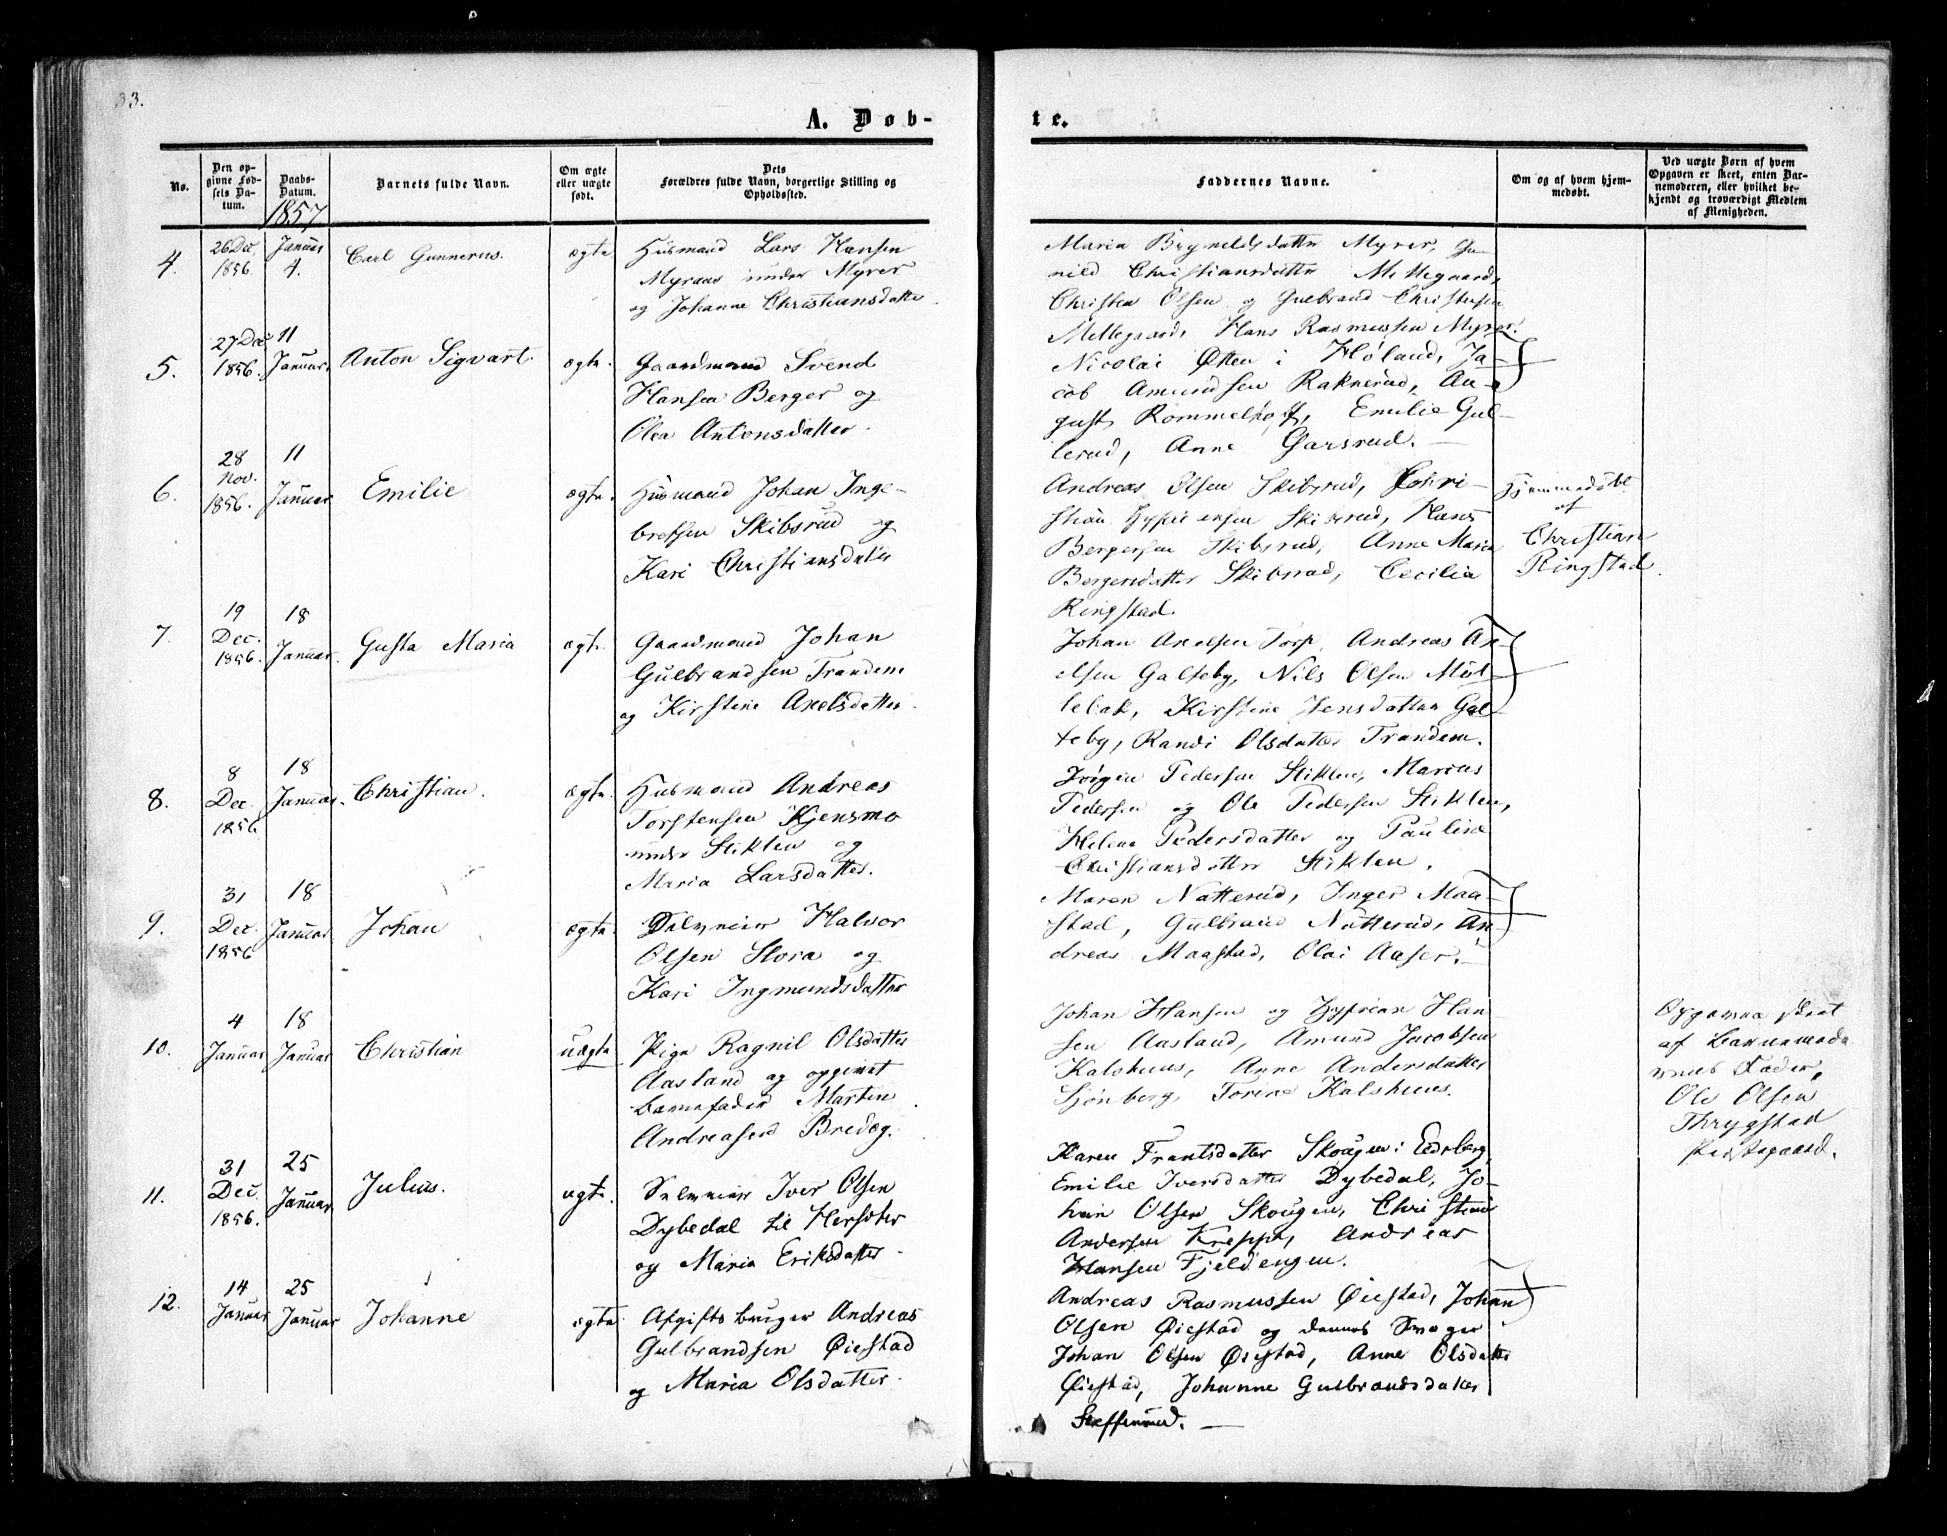 33.
A. Døb-
te.
No.
Den op-
givne Fød-
sels Da-
tum.
Daabs-
Datum.
1857
Barnets fulde Navn.
Om ægte
eller uægte
født.
Dets
Forældres fulde Navn, borgerlige Stilling og
Opholdssted.
Faddernes Navne.
Om og af hvem hjem-
medøbt.
Ved uægte Børn af hvem
Opgaven er skeet, enten Bar-
nemoderen, eller hvilket be-
kjendt og troværdigt Medlem
af Menigheden.
4.
26 Dec.
1856.
Januar
4.
Carl Gunnerus.
ægte
Husmand Lars Hansen
Myraas under Myrer
og Johanne Christiansdatter.
Maria Brynildsdatter Myrer, Gu-
nild Christiansdatter Mellegaard,
Christen Olsen og Gulbrand Christensen
Mellegaard, Hans Rasmussen Myrer.
5.
27 Dec
1856.
11
Januar.
Anton Sigvart.
ægte.
Gaardmand Svend
Hansen Berger og
Olea Antonsdatter.
Nicolai Otten i Høland, Ja-
cob Amundsen Raknerud, Au-
gust Rommelhoff, Emilie Gul-
lerud, Anne Garsrud.
6.
28
Nov.
1856.
11
Januar
Emilie
ægte.
Husmand Johan Inge-
bretsen Skibsrud og
Kari Christiansdatter
Andreas Olsen Skibsrud, Chri-
stian Zypriensen Skibsrud, Hans
Bergersen Skibsrud, Anne Maria
Bergersdatter Skibsrud, Cecilia
Ringstad.
Hjemmedøbt
af
Christian
Ringstad.
7.
19
Dec.
1856.
18
Januar.
Gusta Maria
ægte.
Gaardmand Johan
Gulbrandsen Trandem
og Kirstine Axelsdatter.
Johan Axelsen Torp, Andreas Ax-
elsen Galteby, Nils Olsen Møl-
lebak, Kirstine Jensdatter Gal-
teby, Randi Olsdatter Trandem.
8.
8
Dec.
1856
18
Januar.
Christian.
ægte.
Husmand Andreas
Torstensen Kjensmo
under Stikten og
Maria Larsdatter.
Jørgen Pedersen Stikten, Marius
Pedersen og Ole Pedersen Stikten,
Helene Pedersdatter og Pauline
Christiansdatter Stikten.
9.
31
Dec.
1856
18
Januar
Johan
ægte.
Selveier Halvor
Olsen Hora og
Kari Ingmundsdatter
Maren Natterud, Inger Maa-
stad, Gulbrand Natterud, An-
dreas Maastad, Olai Aaser.
10.
4
Januar
18
Januar
Christian
uægte
Pige Ragnil Olsdatter
Aasland og opgivet
Barnefader Martin
Andreasen Bredeg.
Johan Hansen og Zyprian Han-
sen Aasland, Amund Jacobsen
Kalshuus, Anne Andersdatter
Sjønberg, Torine Kalshuus.
Opgaven skeet
af Barnemode-
rens Fader,
Ole Olsen
Thrygstad
Præstegaard.
11.
31
Dec.
1856.
25
Januar
Julius.
ægte.
Selveier Iver Olsen
Dybedal til Hersæter
og Maria Eriksdatter.
Karen Frantsdatter Skougen i Eidsberg,
Emilie Iversdatter Dybedal, Jo-
han Olsen Skougen, Christian
Andersen Krepp, Andreas
Hansen Fjeldengen.
12.
14
Januar
25
Januar
Johanne
ægte.
Afgiftsbruger Andreas
Gulbrandsen Øiestad
og Maria Olsdatter.
Andreas Rasmussen Øiestad, Johan
Olsen Øiestad og dennes Svoger
Johan Olsen Øiestad, Anne Olsdatter
Øiestad, Johanne Gulbrandsdatter